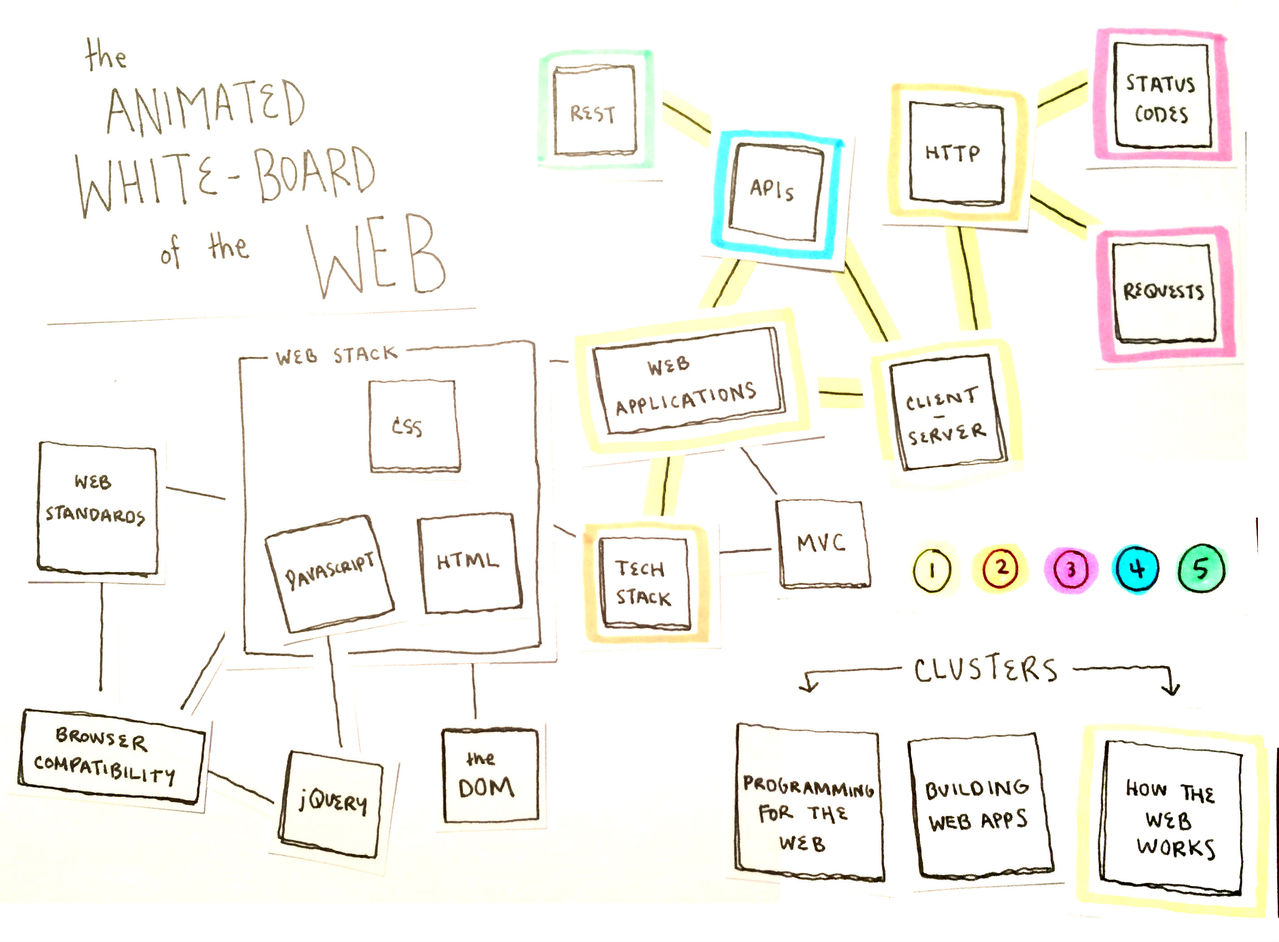 the
ANIMATED
WHITE-BOARD
of the WEB
REST
APIs
HTTP
STATUS
CODES
REQUESTS
WEB STACK
CSS
JAVASCRIPT
HTML
WEB
APPLICATIONS
CLIENT
-
SERVER
WEB
STANDARDS
TECH
STACK
MVC
1 2 3 4 5
BROWSER
COMPATIBILITY
jQUERY
the
DOM
CLUSTERS
PROGRAMMING
FOR THE
WEB
BUILDING
WEB APPS
HOW THE
WEB
WORKS